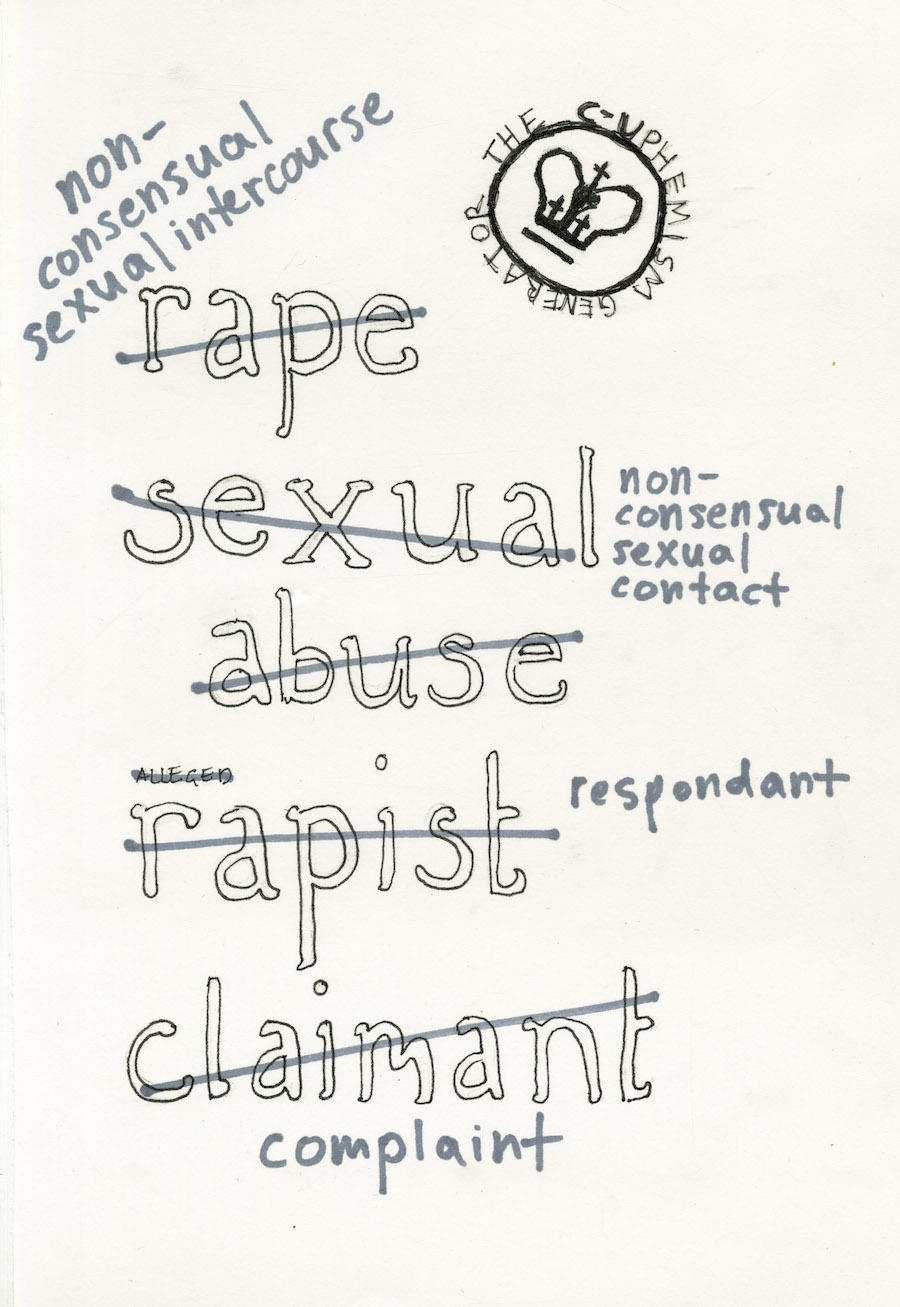 non-
consensual
sexual intercourse
THE C-UPHEMISM GENERATOR
rape
sexual
non-
consensual
sexual
contact
abuse
ALLEGED
rapist
respondant
claimant
complaint